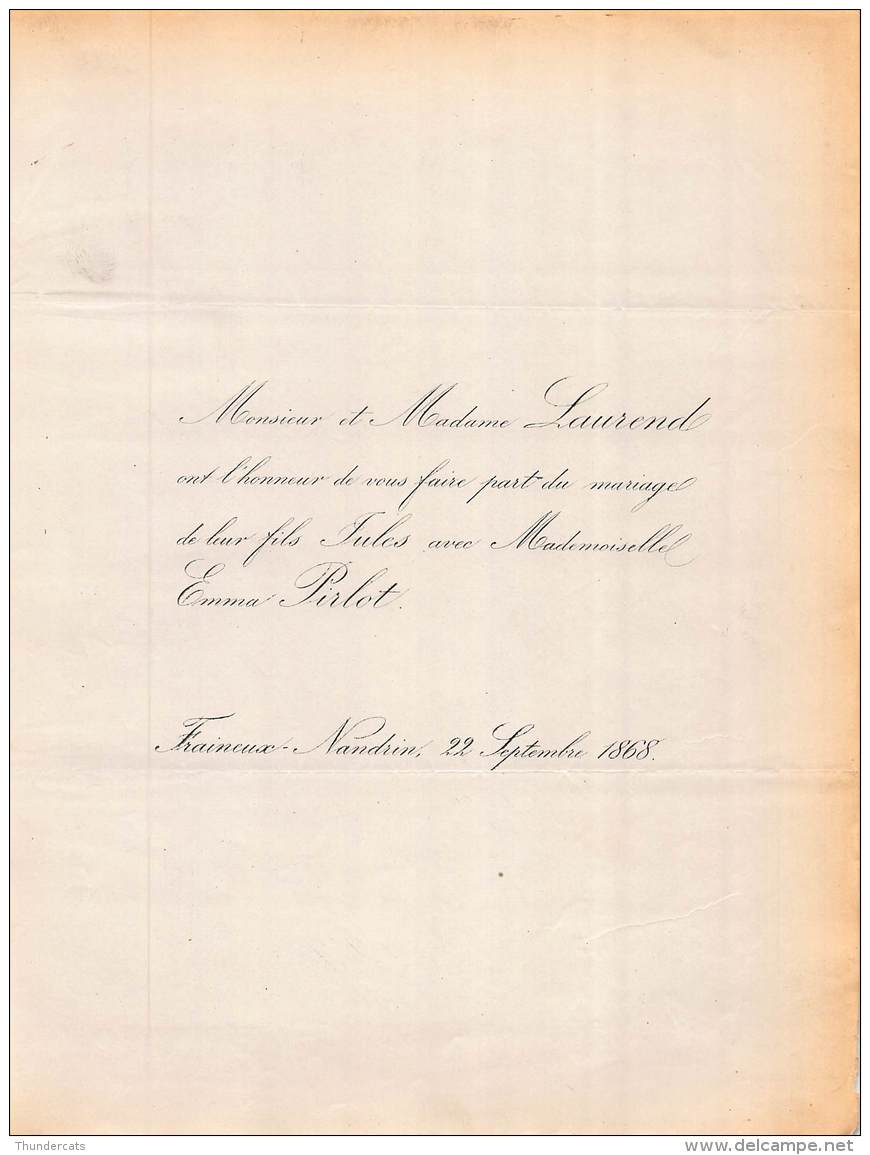 Monsieur et Madame Laurend
ont l'honneur de vous faire part du mariage
de leur fils Jules avec Mademoiselle
Emma Pirlot.
Fraineux-Nandrin, 22 Septembre 1868.
Thundercats
www.delcampe.net